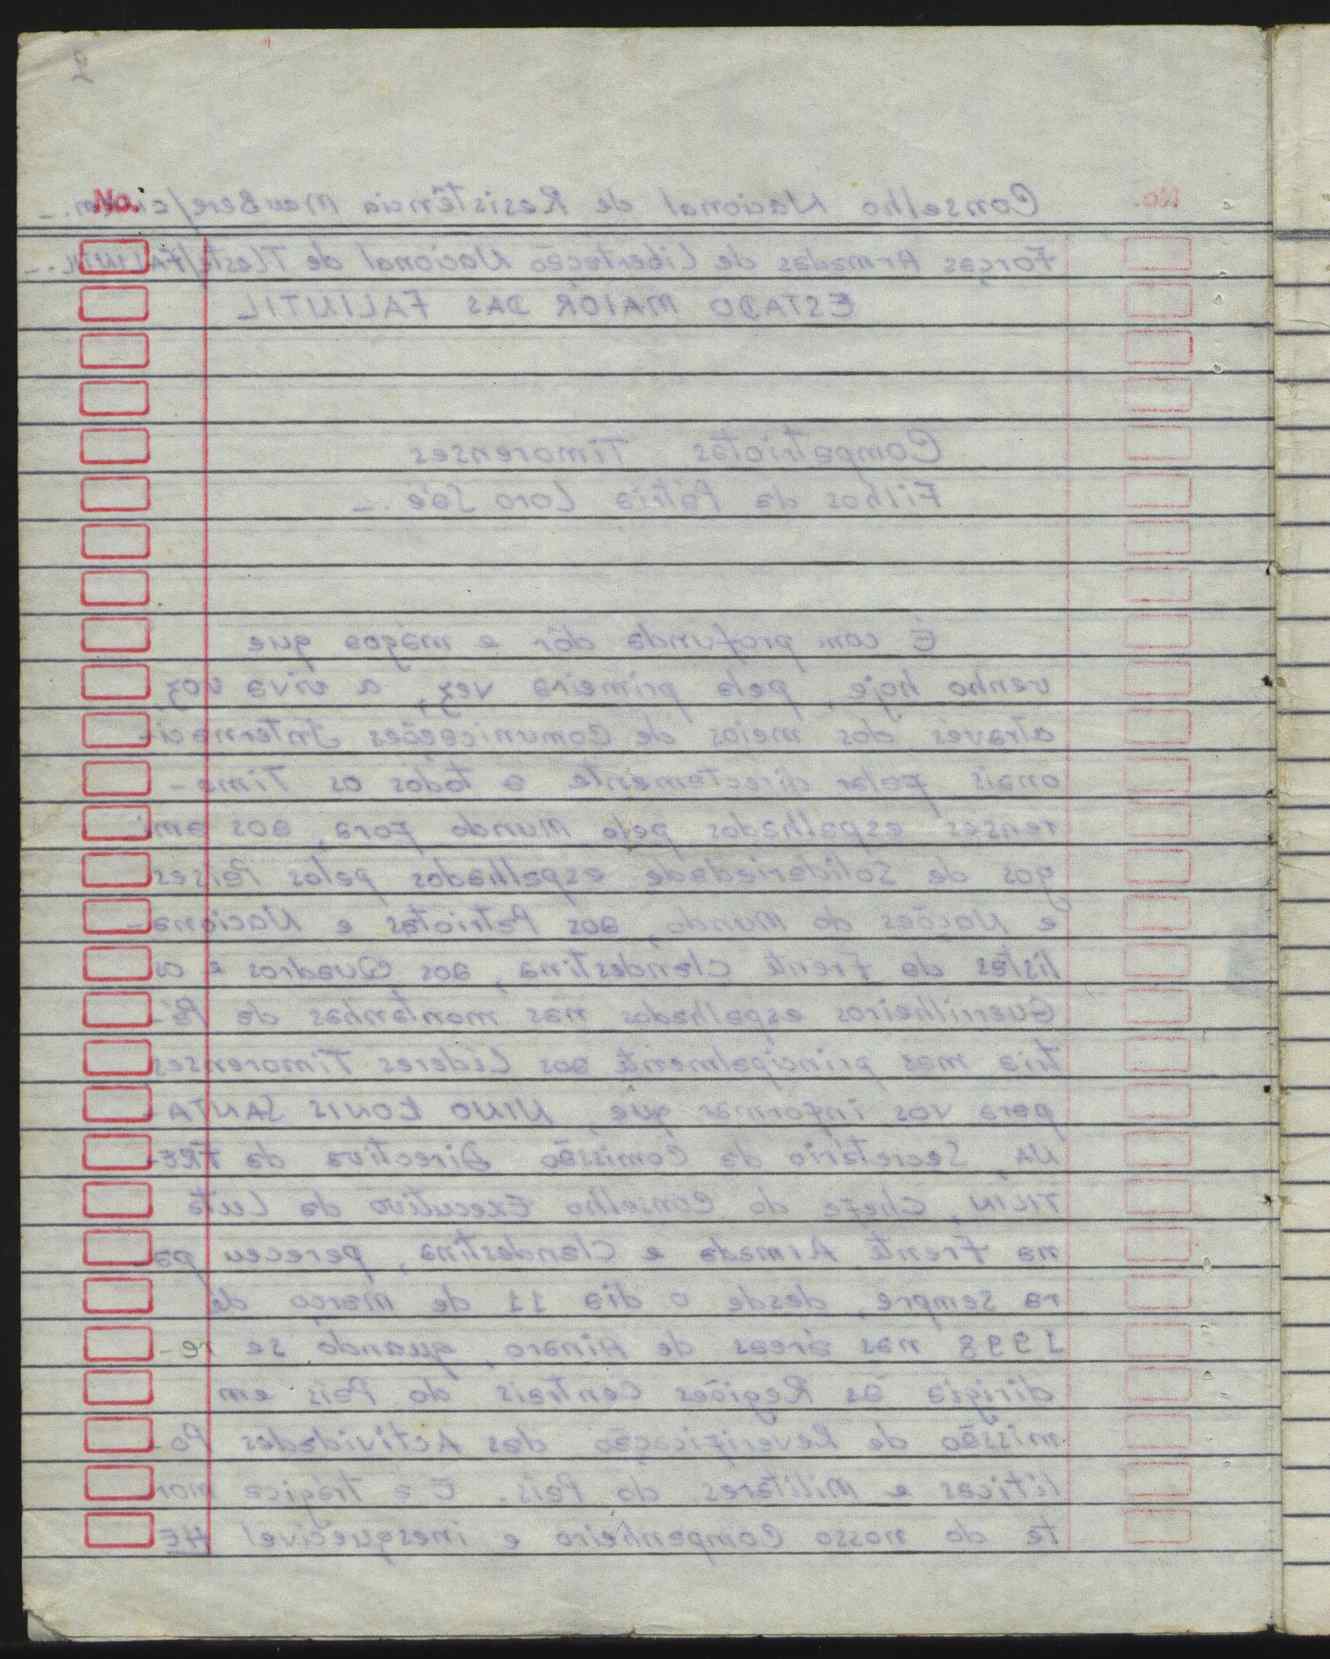 2
No.
Conselho Nacional de Resistência Maubere/cnrm.-
Forças Armadas de Libertação Nacional de Tleste/FALINTIL.-
ESTADO MAIOR DAS FALINTIL
Compatriotas Timorenses
Filhos da Pátria Loro Sáe.-
É com profunda dôr e mágoa que
venho hoje, pela primeira vez, a viva voz,
através dos meios de Comunicações Internaci-
onais falar directamente a todos os Timo-
renses espalhados pelo Mundo fora, aos ami-
gos de Solidariedade espalhados pelos Países
e Nações do Mundo, aos Patriotas e Naciona-
listas da Frente Clandestina, aos Quadros e os
Guerrilheiros espalhados nas montanhas da Pá-
tria mas principalmente aos Líderes Timorenses
para vos informar que, NINO KONIS SANTA-
NA, Secretário da Comissão Directiva da FRE-
TILIN, Chefe do Conselho Executivo da Luta
na Frente Armada e Clandestina, pereceu pa-
ra sempre, desde o dia 11 de março de
1998 nas áreas de Ainaro, quando se re-
dirigia às Regiões Centrais do País em
missão de Reverificação das Actividades Po-
líticas e Militares do País. É a trágica mor
te do nosso Companheiro e inesquecível HE